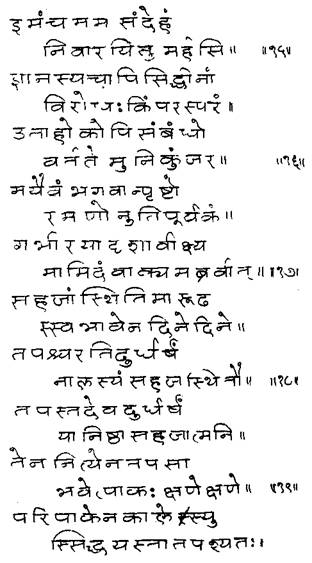 इमंच मम संदेहं
निवारयितु मर्हसि॥ ॥१५॥
ज्ञानस्यचापि सिद्धीनां
विरोधः किं परस्परं॥
उताहो कोपि संबंधो
वर्तते मुनिकुंजर॥ ॥१६॥
मयैवं भगवान्पृष्टो
रमणो नुतिपूर्वकं॥
गभीरया दृशा वीक्ष्य
मामिदं वाक्य मब्रवीत्॥ ॥१७॥
सहजां स्थिति मारूढ
स्स्वभावेन दिने दिने॥
तपश्चरति दुर्धर्षं
नालस्यं सहजस्थितौ॥ ॥१८॥
तपस्तदेव दुर्धर्षं
या निष्ठा सहजात्मनि॥
तेन नित्येन तपसा
भवेत्पाकः क्षणे क्षणे॥ ॥१९॥
परिपाकेन काले स्यु
स्सिद्धयस्तात पश्यतः।